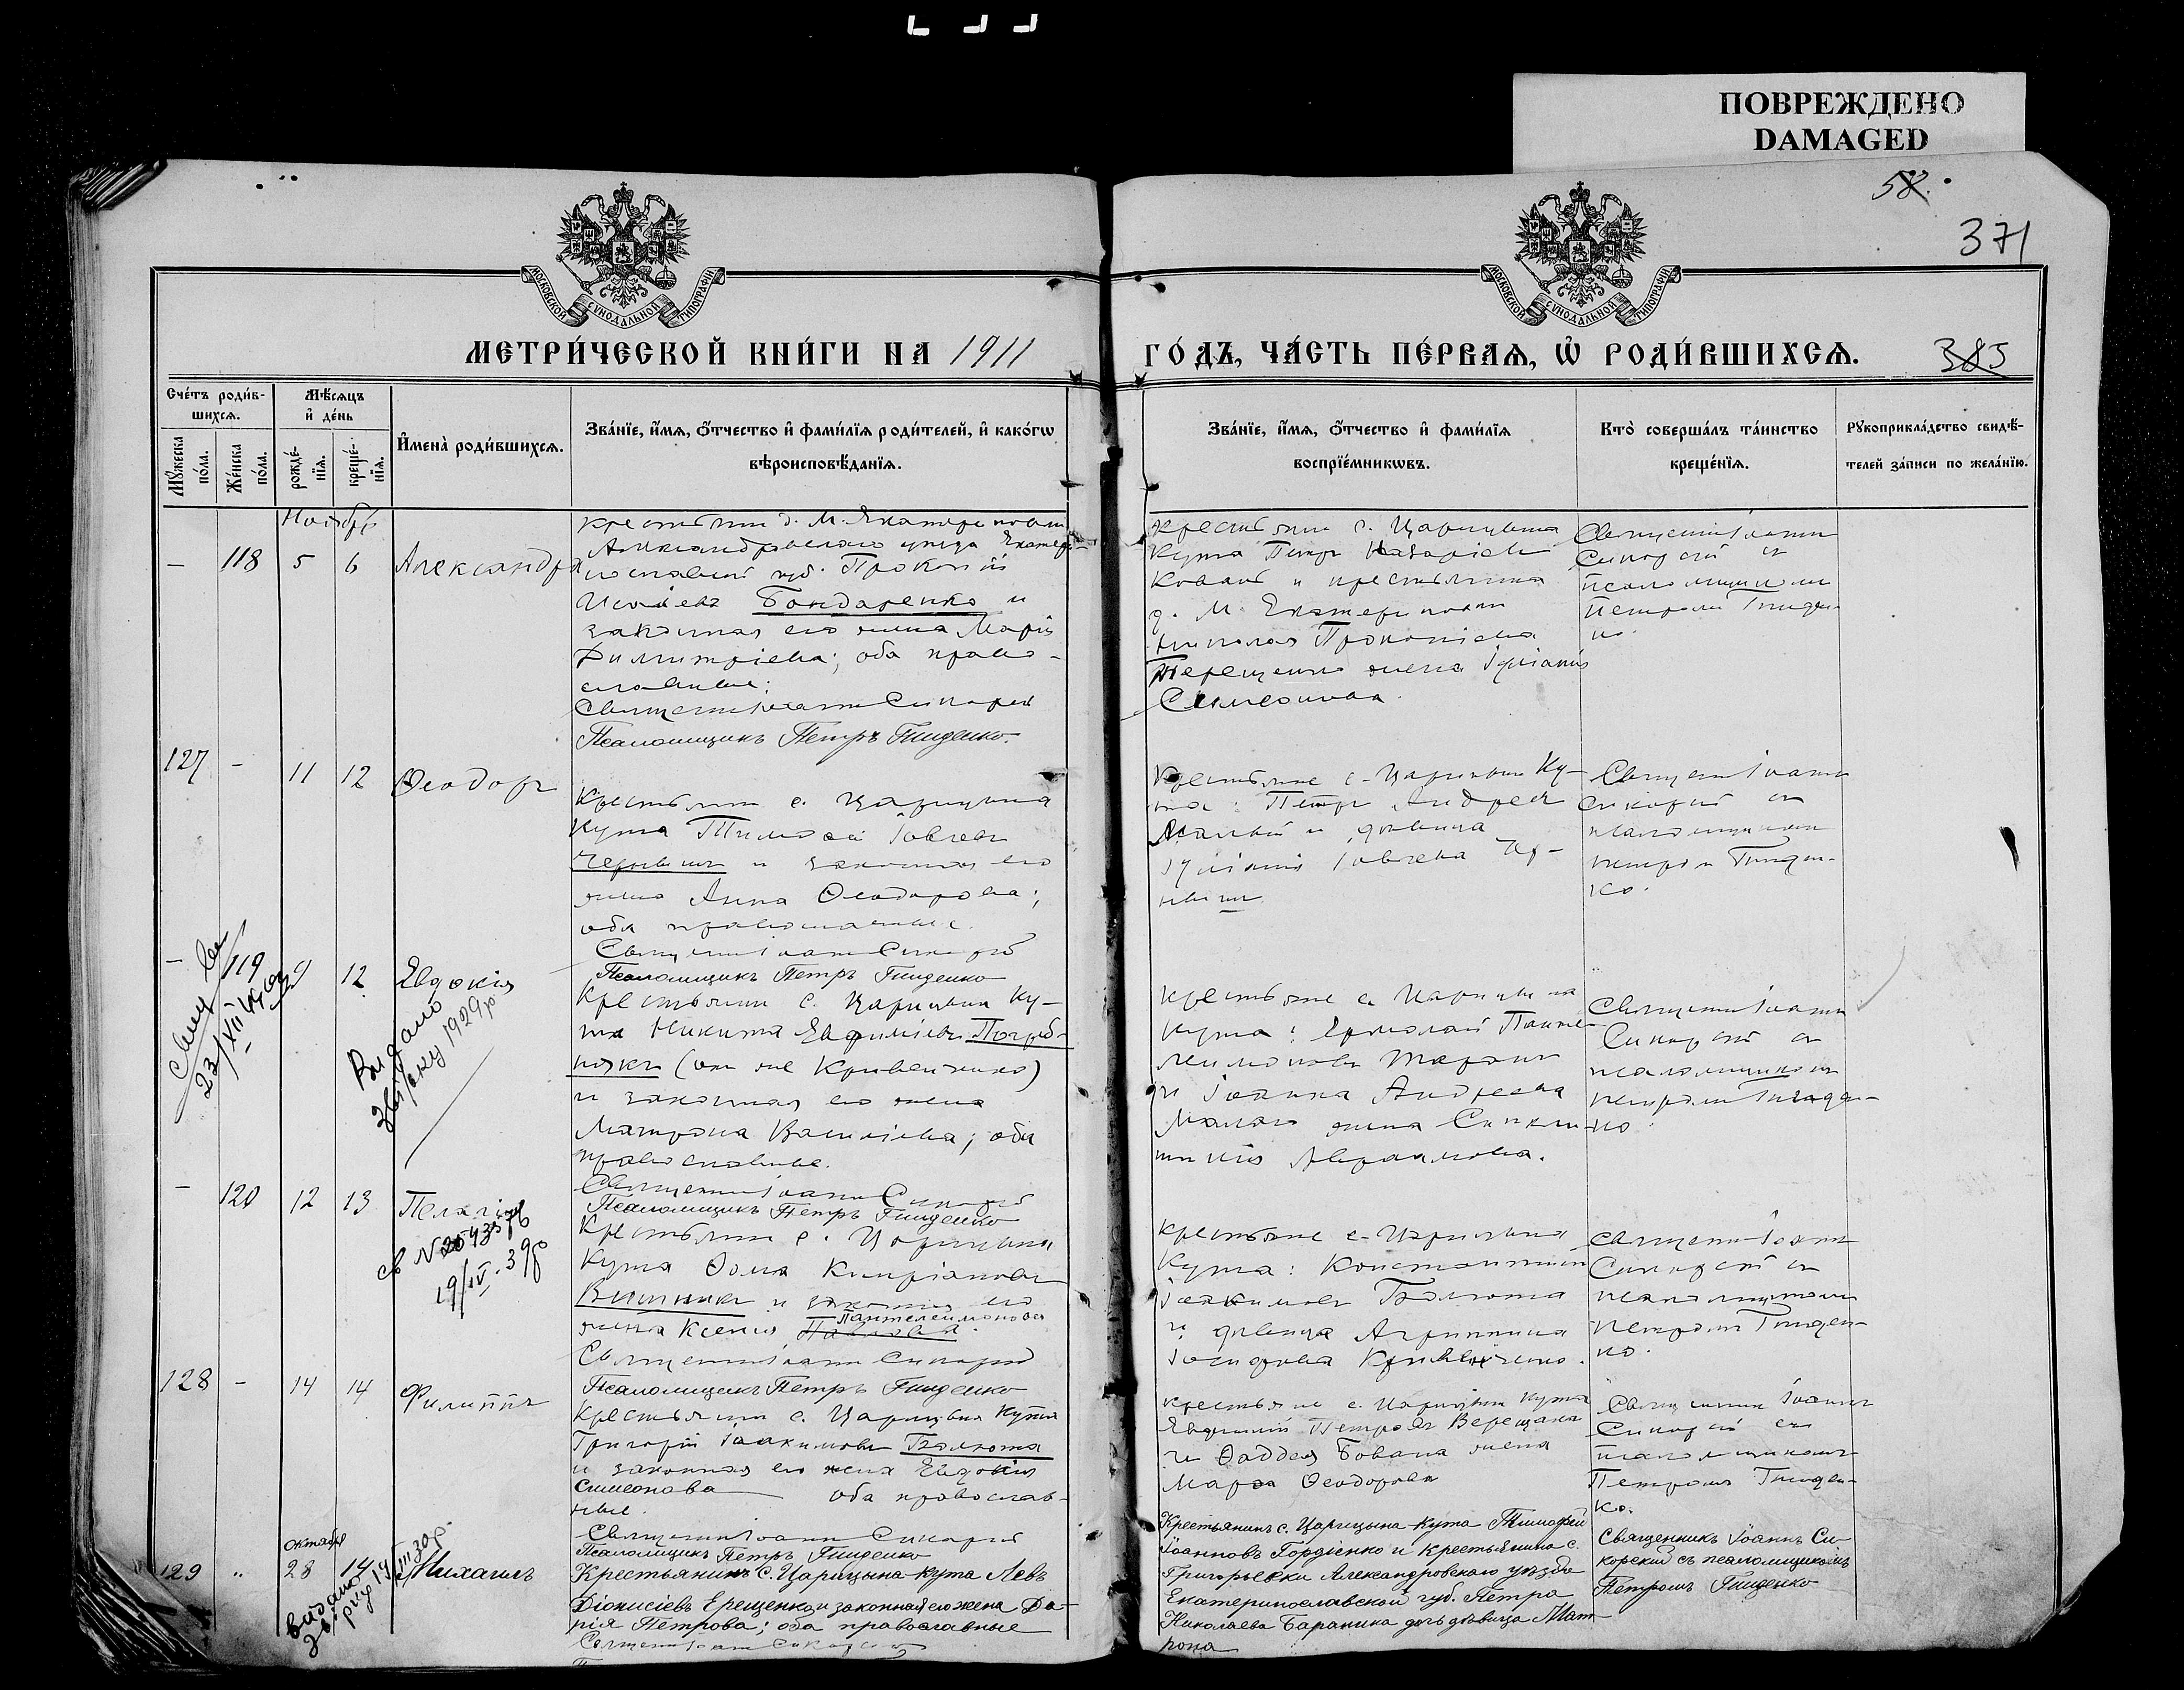 ПОВРЕЖДЕНО
DAMAGED
58.
371
МОСКОВСКОЙ СУНОДАЛЬНОЙ ТИПОГРАФІИ
МОСКОВСКОЙ СУНОДАЛЬНОЙ ТИПОГРАФІИ
МЕТРИ́ЧЕСКОЙ КНИ́ГИ НА 1911
ГО́ДЪ, ЧА́СТЬ ПЕ́РВАЯ, Ѡ҆ РОДИ́ВШИХСЯ.
385
Сче́тъ роди́в-
шихся.
Мꙋжеска по́ла.
Же́нска по́ла.
Мѣ́сяцъ
и҆ де́нь
рожде́-
нїя.
креще́-
нїя.
И҆мена̀ роди́вшихся.
Зва́нїе, и҆́мя, ѻ҆́тчество и҆ фами́лїя роди́телей, и҆ како́гѡ
вѣроисповѣ́данїя.
Зва́нїе, и҆́мя, ѻ҆́тчество и҆ фами́лїя
воспрїе́мникѡвъ.
Кто̀ соверша́лъ та́инство
креще́нїя.
Рꙋкоприкла́дство свидѣ́-
телей за́писи по жела́нїю.
Ноябрь
– 118 5 6 Александра
Крестьянин д. М. Екатериновки
Александровского уезда Екатери-
нославской губ. Прокопій
Бондаренко и
законная его жена Марія
Димитріева; оба право-
славные;
Псаломщикъ Петръ Гниденко.
крестьянин с. Царицына
Кута Петр Назаріев
Коваль и крестьянина
д. М. Екатериновки
Николая Прокопіева
Терещенко жена Іуліанія
Симеонова.
Священник Іоанн
Сикорскій с
псаломщиком
Петром Гниден-
ко.
127 – 11 12 Ѳеодоръ
Крестьянин с. Царицына
Кута Тимоѳей Іовлев
и законная его
жена Анна Ѳеодорова;
оба православные.
Священник Іоанн Сикорскій
Псаломщикъ Петръ Гниденко
Крестьяне с. Царицына Ку-
та: Петр Андреев
Малый и девица
Іуліанія Іовлева
Священник Іоанн
Сикорскій с
псаломщиком
Петром Гниден-
ко.
– 119 9 12 Евдокія
Видано
1929р
Крестьянин с. Царицына Ку-
та Никита Евфиміев Погреб-
няк (он же Кривенченко)
и законная его жена
Матрона Васильева; оба
православные.
Священник Іоанн Сикорскій
Псаломщикъ Петръ Гниденко
крестьяне с. Царицына
Кута: Ермолай Панте-
леимонов Таран
и Іоанна Андреева
Малаго жена Синкли-
тикія Авраамова.
Священник Іоанн
Сикорскій с
псаломщиком
Петром Гниден-
ко.
– 120 12 13 Пелагія
19/IV. 39р
Крестьянин с. Царицына
Кута Ѳома Кипріанов
и законная его
жена Ксенія Пантелеимонова
Священник Іоанн Сикорскій
Псаломщикъ Петръ Гниденко
крестьяне с. Царицына
Кута: Константин
Іоакимов Балюта
и девица Агриппина
Священник Іоанн
Сикорскій с
псаломщиком
Петром Гниден-
ко.
128 – 14 14 Филиппъ
Крестьянин с. Царицына Кута
Григорій Іоакимов Балюта
и законная его жена Евдокія
Симеонова оба православ-
ные.
Священник Іоанн Сикорскій
Псаломщикъ Петръ Гниденко
крестьяне с. Царицына Кута
Евфимій Петров Верещака
и Ѳаддея Бована жена
Марѳа Ѳеодорова
Священник Іоанн
Сикорскій с
псаломщикомъ
Петромъ Гниден-
ко.
октября
129 „ 28 14 Михаилъ
Крестьянинъ с. Царицына-Кута Левъ
Діонисіевъ Ерещенко и законная его жена Да-
рія Петрова; оба православные
Крестьянинъ с. Царицына-Кута Тимофей
Іоанновъ Гордіенко и крестьянина с.
Григорьевки Александровскаго уѣзда
Екатеринославской губ. Петра
Николаева Бараника дочь дѣвица Мат-
рона
Священникъ Іоаннъ Си-
корскій съ псаломщикомъ
Петромъ Гниденко